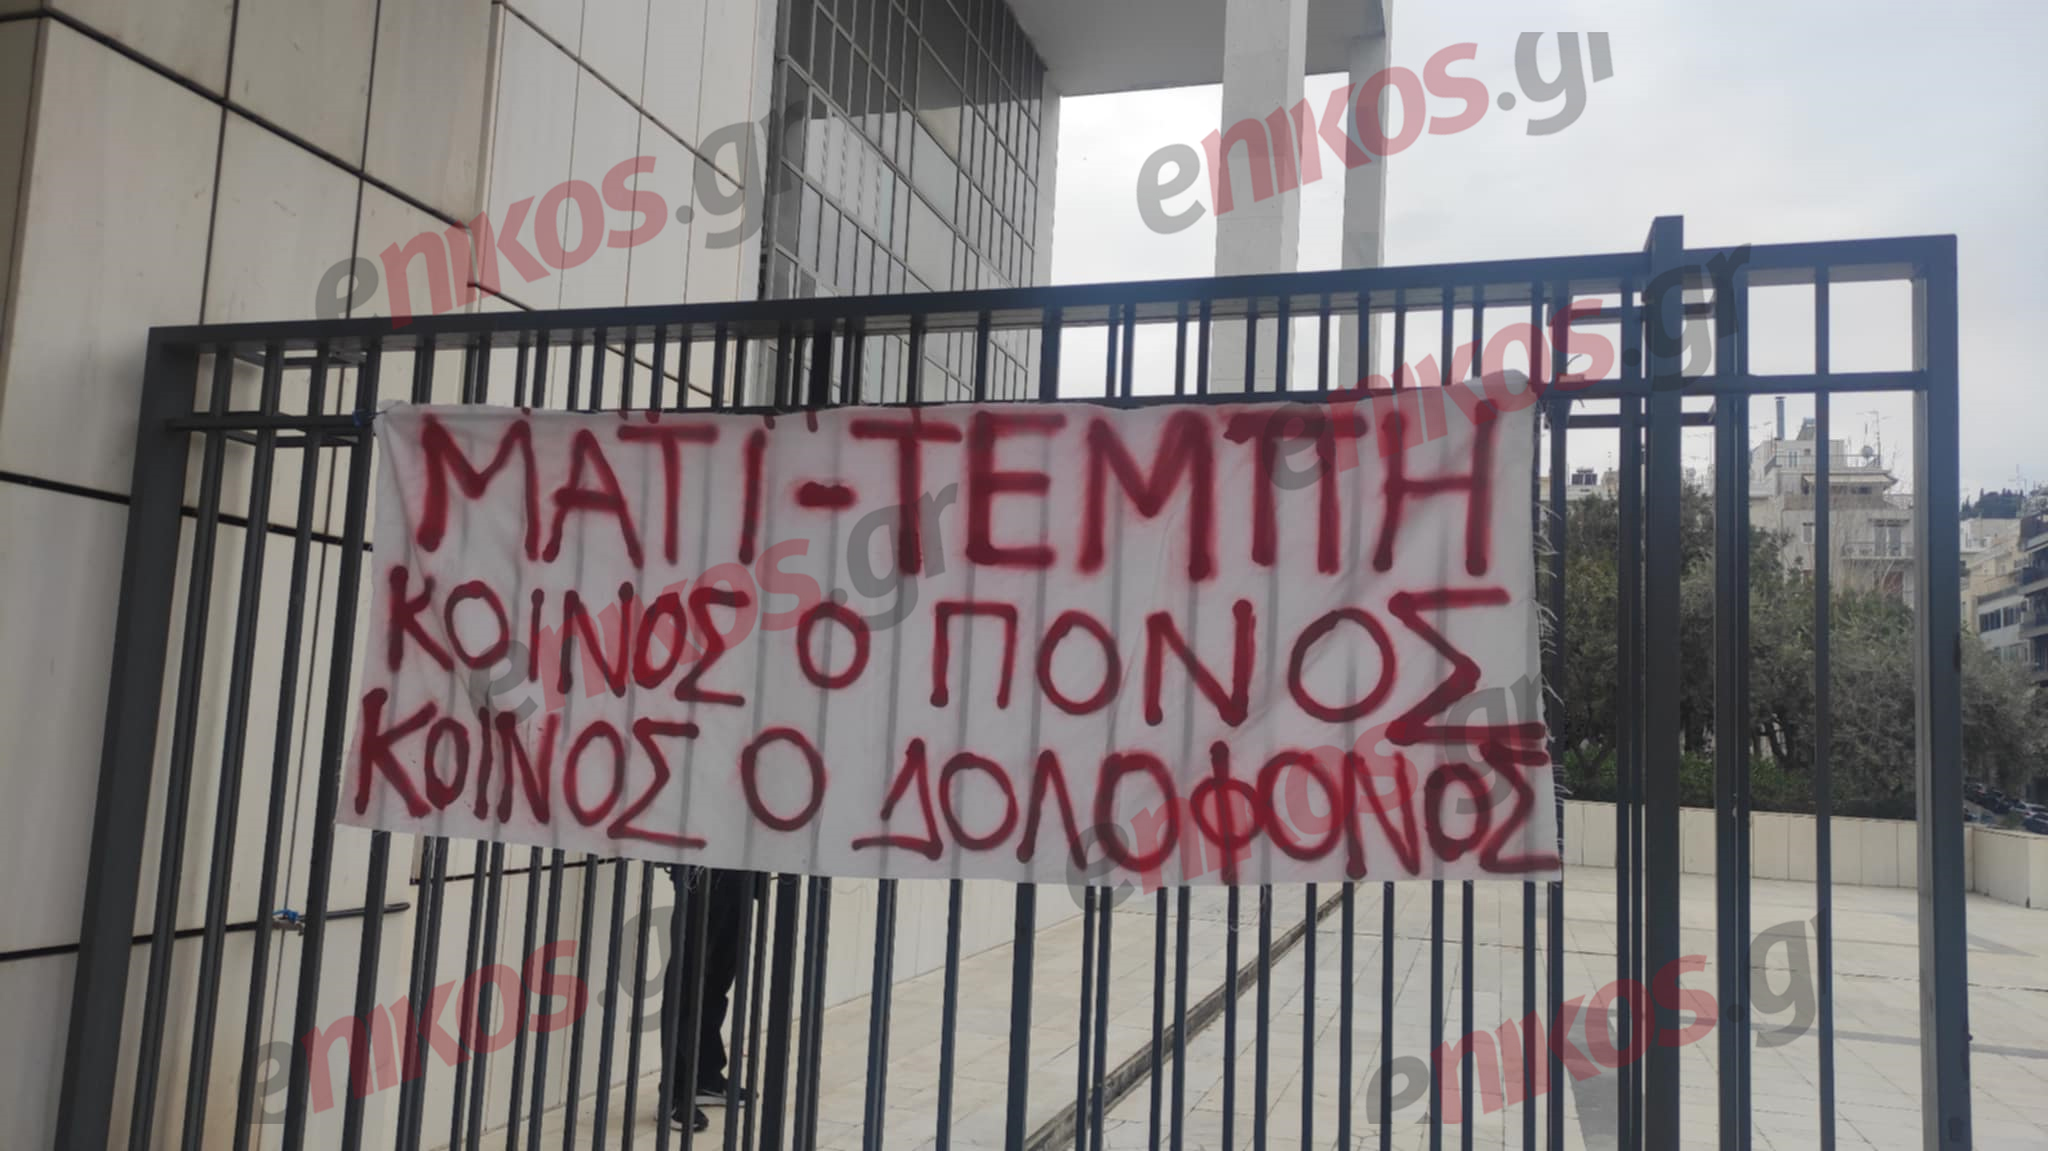 ΜΑΤΙ-ΤΕΜΠΗ
ΚΟΙΝΟΣ Ο ΠΟΝΟΣ
ΚΟΙΝΟΣ Ο ΔΟΛΟΦΟΝΟΣ
enikos.gr
enikos.gr
enikos.gr
enikos.gr
enikos.gr
enikos.gr
enikos.gr